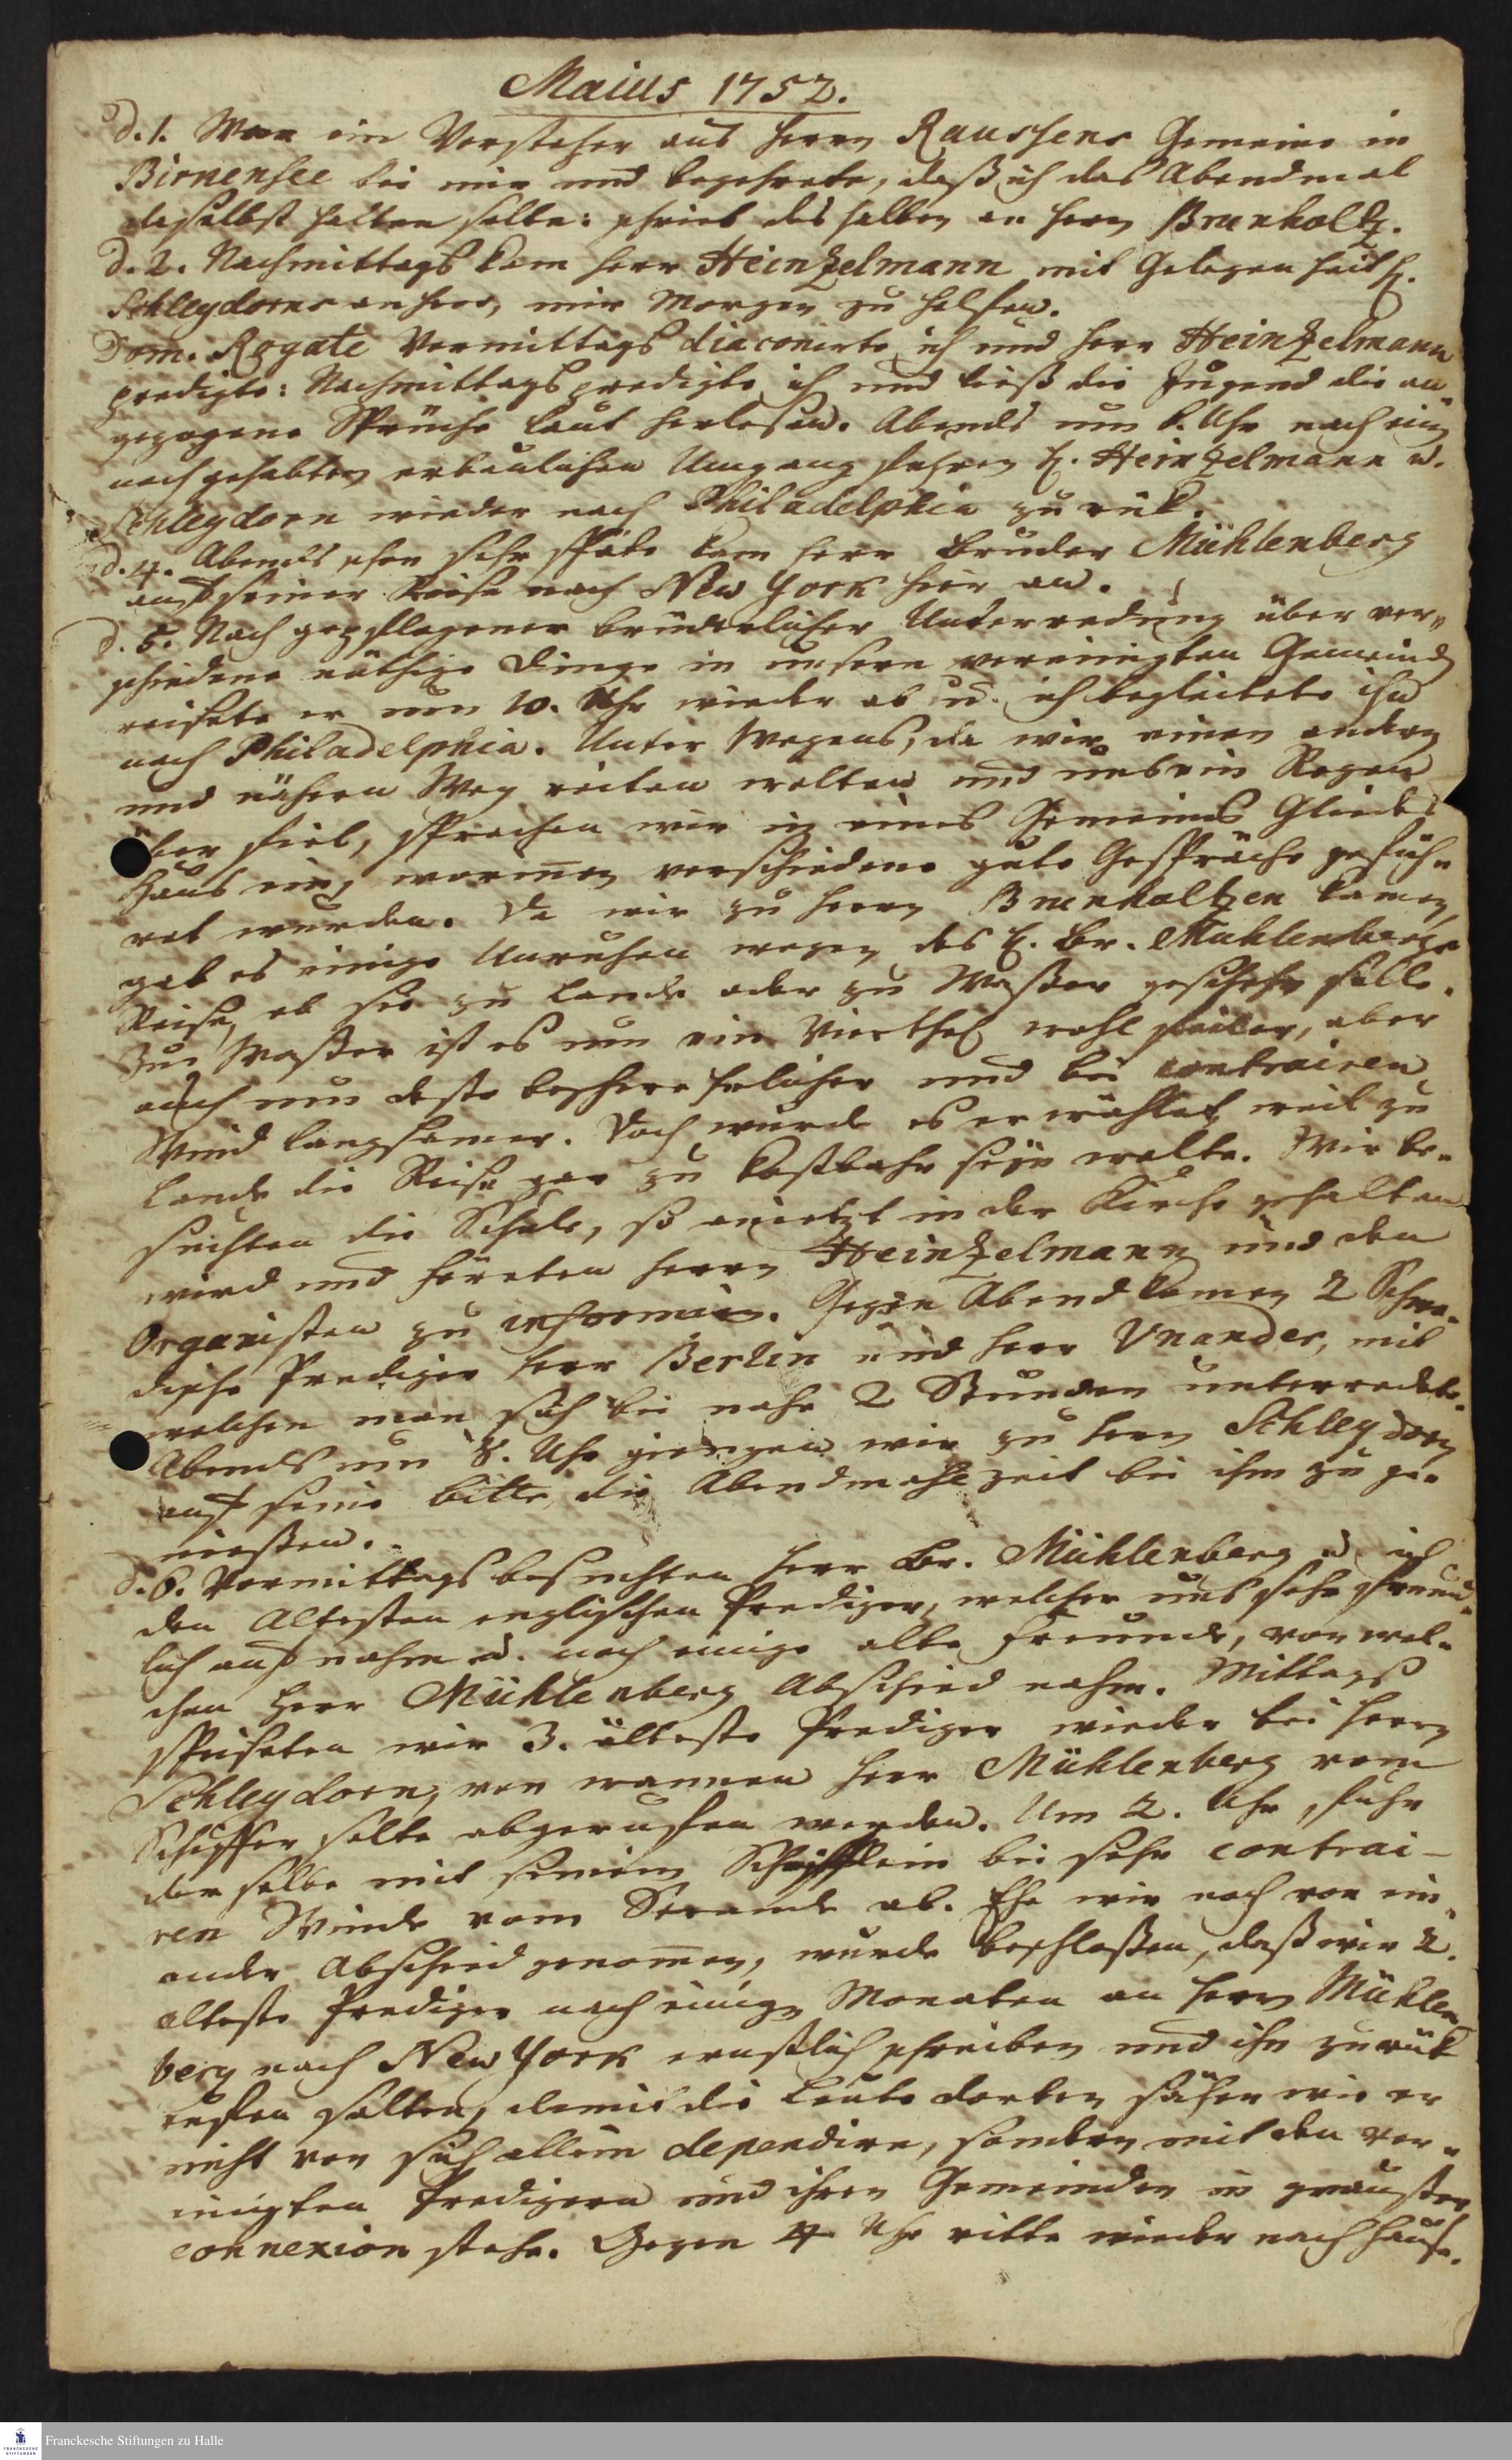 Maius 1752.
d. 1. War ein Vorsteher aus Herrn Raussens Gemeine in
Birnensee bei mir und begehrete, daß ich das Abendmal
daselbst halten solte: schrieb deshalben an Herrn Brunholtz.
d. 2. Nachmittags kam Herr Heinzelmann mit Gelegenheit H.
Schleydorns anhero, mir Morgen zu helfen.
Dom. Rogate Vormittags diaconirte ich und Herr Heinzelmann
predigte: Nachmittags predigte ich und ließ die Jugend die an„
gezogene Sprüche laut herlesen. Abends um 6. Uhr nach einem
noch gehabten erbaulichen Umgang fuhren H. Heinzelmann u.
Schleydorn wieder nach Philadelphia zurük.
d. 4. Abends schon sehr späte kam Herr Bruder Mühlenberg
auf seiner Reise nach New York hier an.
d. 5. Nach gepflogener brüderlicher Unterredung über ver„
schiedene nöthige Dinge in unsern vereinigten Gemeinden
reisete er um 10. Uhr wieder ab u. ich begleitete ihn
nach Philadelphia. Unter Wegens, da wir einen andern
und nähern Weg reiten wolten und uns ein Regen
über fiel, sprachen wir in eines Gemeinds Gliedes
Haus ein, worinnen verschiedene gute Gespräche gefüh„
ret wurden. Da wir zu Herrn Brunholtzen kamen,
gab es einige Unruhen wegen des H. Br. Mühlenbergs
Reise, ob sie zu Lande oder zu Waßer geschehen solle.
Zu Waßer ist es um ein Viertheil wohlfeiler, aber
auch um desto beschwerlicher und bei contrairen
Wind langsamer. Doch wurde es erwählet, weil zu
Lande die Reise gar zu kostbahr seyn wolte. Wir be„
suchten die Schule, so anietzt in der Kirche gehalten
wird und höreten Herrn Heinzelmann und den
Organisten zu informiren. Gegen Abend kamen 2 Schwe„
dische Prediger Herr Berlin und Herr Vnander, mit
welchen man sich bei nahe 2 Stunden unterredete.
Abends um 8. Uhr giengen wir zu Herrn Schleydorn
auf seine Bitte, die Abendmahlzeit bei ihm zu ge„
niessen.
d. 6. Vormittags besuchten Herr Br. Mühlenberg u. ich
den Altesten englischen Prediger, welcher uns sehr freund„
lich aufnahm u. noch einige alte Freunde, von wel„
chen Herr Mühlenberg Abschied nahm. Mittags
speiseten wir 3. älteste Prediger wieder bei Herrn
Schleydorn, von wannen Herr Mühlenberg vom
Schiffer solte abgerufen werden. Um 2. Uhr fuhr
derselbe mit seinem Schifflein bei sehr contrai-
ren Winde vom Strande ab. Ehe wir noch von ein„
ander Abschied genommen, wurde beschloßen, daß wir 2.
älteste Prediger nach einigen Monaten an Herrn Mühlen
berg nach New York ernstlich schreiben und ihn zurük
rufen solten, damit die Leute dorten sähen wie er
nicht von sich allein dependire, sondern mit den ver„
einigten Predigern und ihren Gemeinden in genauster
connexion stehe. Gegen 4 Uhr ritte wieder nach Hause.
Franckesche Stiftungen zu Halle